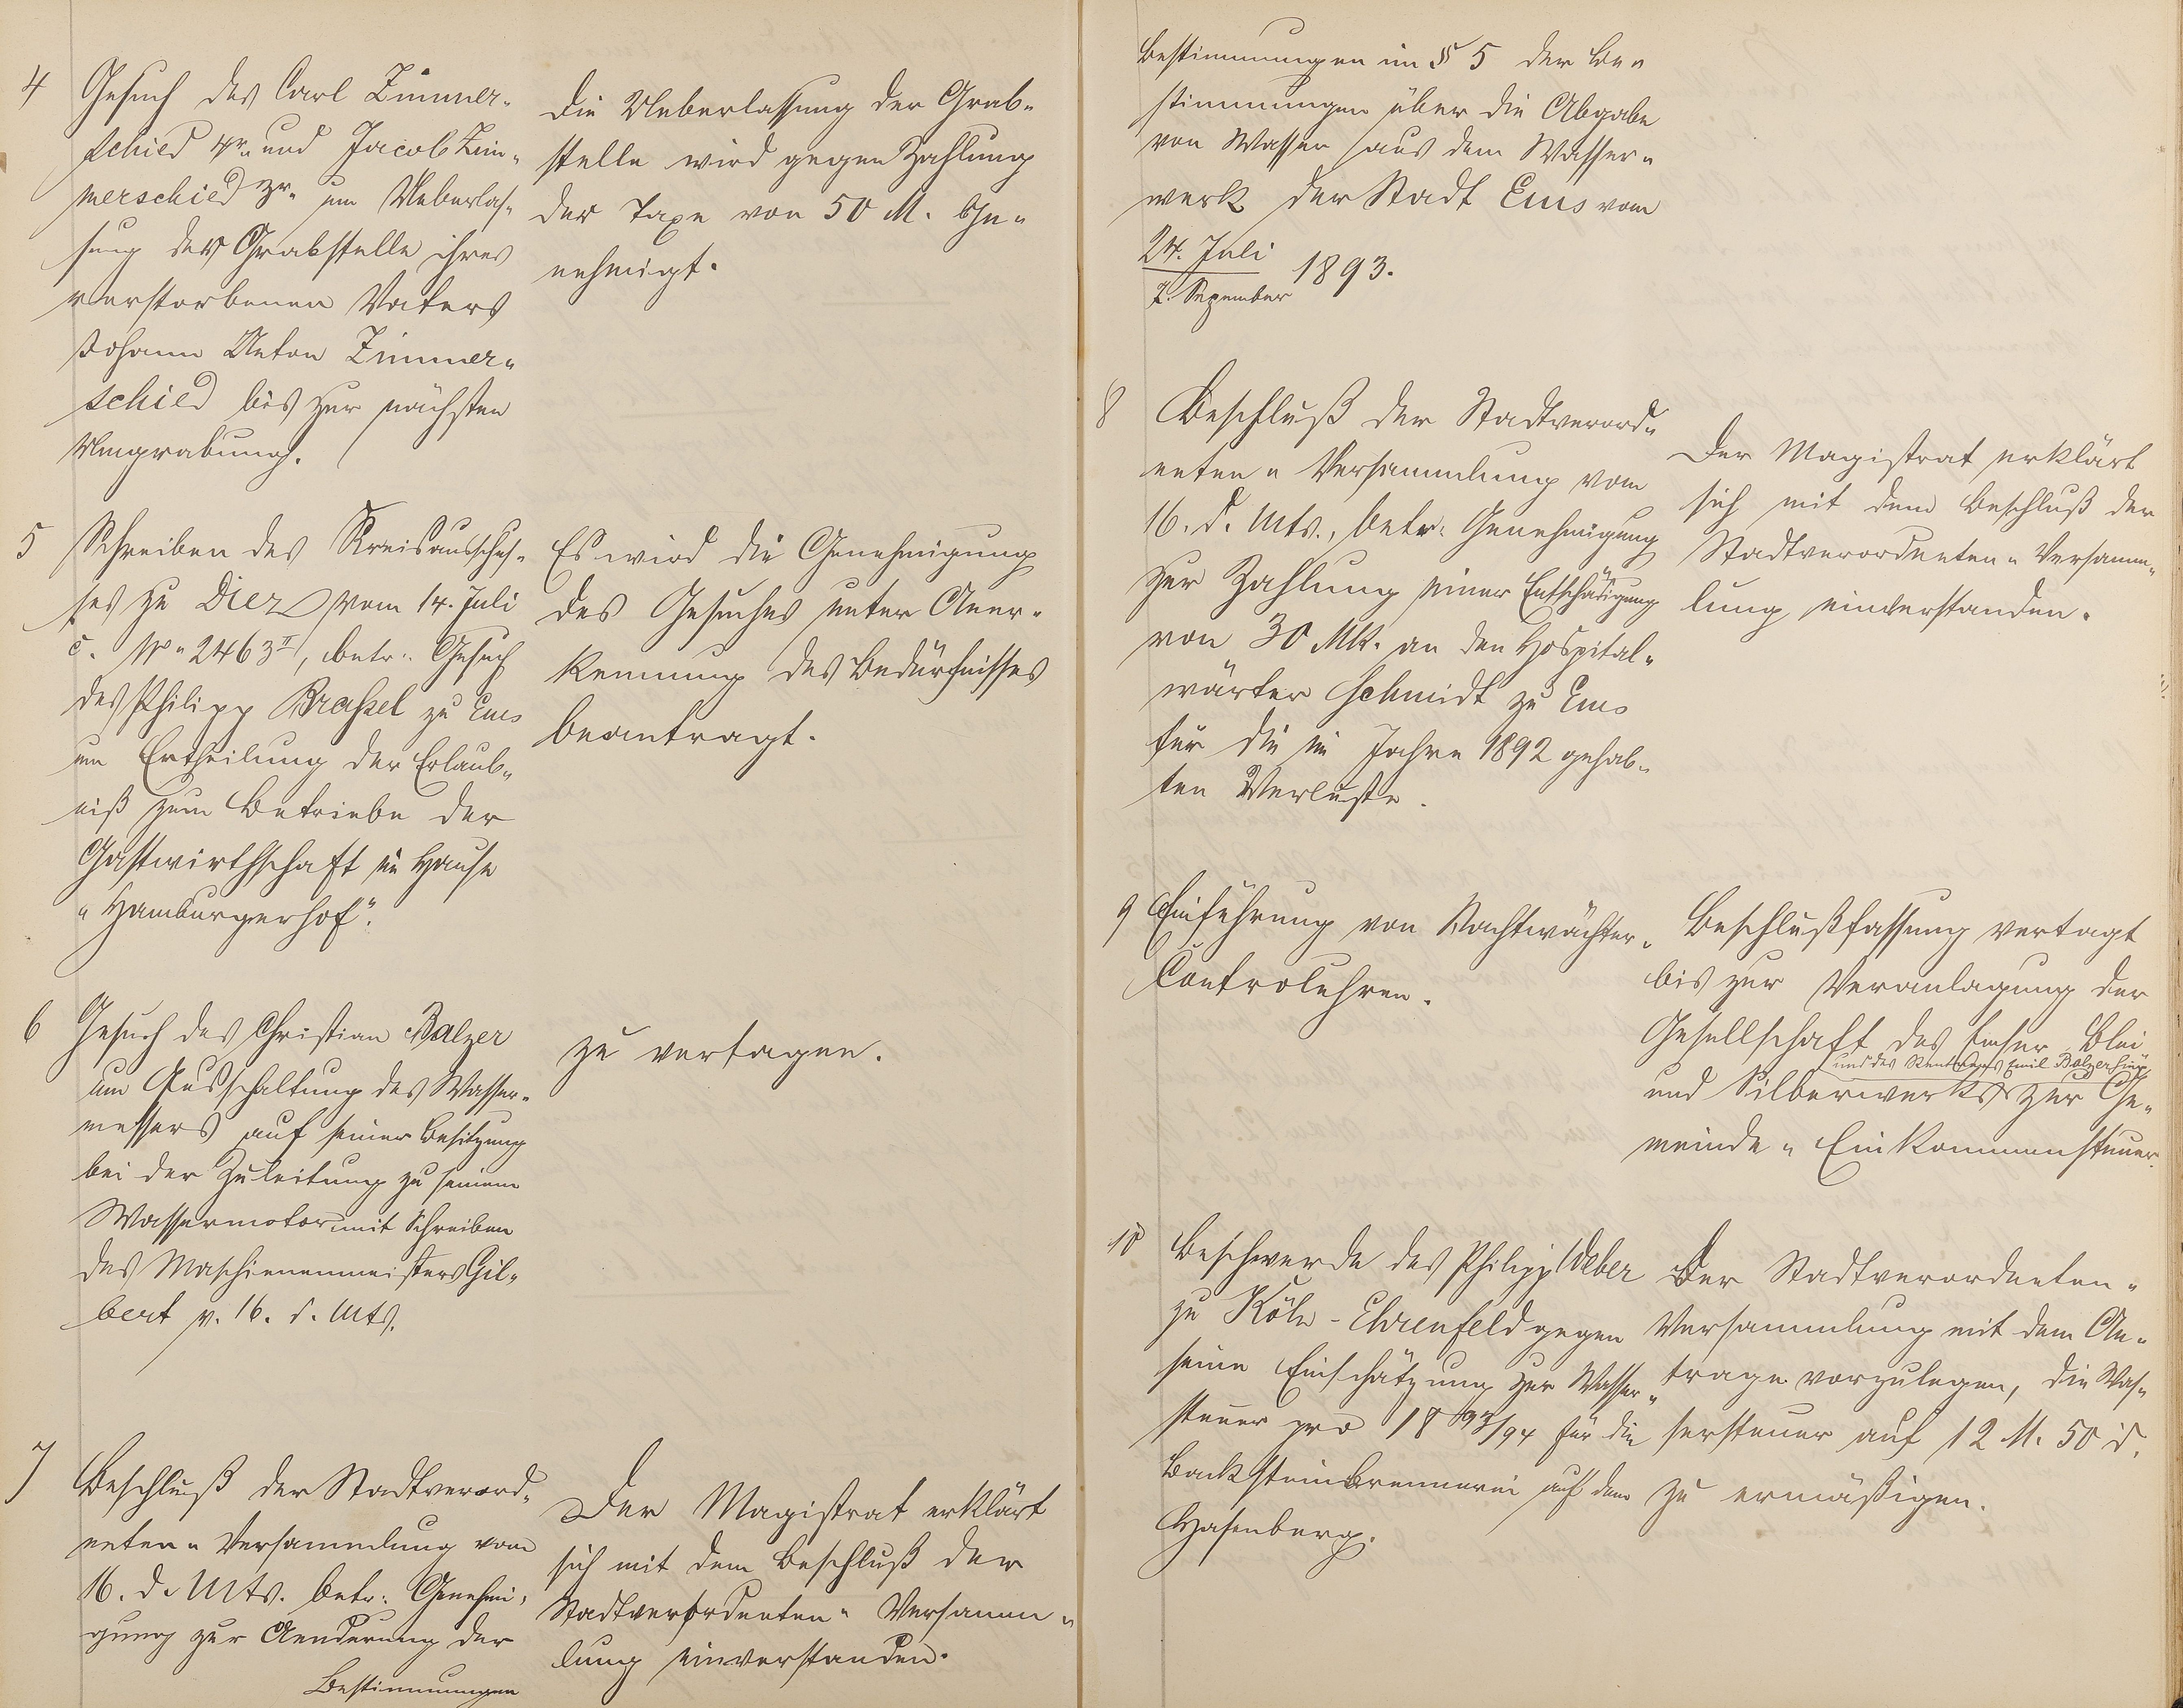 4
Gesuch des Carl Zimmer-
schied 4r. und Jacob Zim-
merschied 2r. um Ueberlas-
sung der Grabstelle ihres
verstorbenen Vaters
Johann Anton Zimmer-
schied bis zur nächsten
Umgrabung.
Die Ueberlassung der Grab-
stelle wird gegen Zahlung
der Taxe von 50 M. ge-
nehmigt.
5
Schreiben des Kreisausschus-
ses zu Diez vom 14. Juli
c. No. 2463 II, betr. Gesuch
des Philipp Brassel zu Ems
um Ertheilung der Erlaub-
niß zum Betriebe der
Gastwirthschaft im Hause
"Hamburgerhof".
Es wird die Genehmigung
des Gesuches unter Aner-
kennung des Bedürfnisses
beantragt.
6
Gesuch des Christian Balzer
um Ausschaltung des Wasser-
messers auf seiner Besitzung
bei der Zuleitung zu seinem
Wassermotor mit Schreiben
des Maschienenmeisters Gil-
bert v. 16. d. Mts.
zu vertagen.
7
Beschluß der Stadtverord-
neten-Versammlung vom
16. d. Mts. betr. Genehmi-
gung zur Aenderung der
Bestimmungen
Der Magistrat erklärt
sich mit dem Beschluß der
Stadtverordneten-Versamm-
lung einverstanden.
Bestimmungen im § 5 der Be-
stimmungen über die Abgabe
von Wasser aus dem Wasser-
werk der Stadt Ems vom
24. Juli
7. Sepember 1893.
8
Beschluß der Stadtverord-
neten-Versammlung vom
16. d. Mts., betr. Genehmigung
zur Zahlung einer Entschädigung
von 30 Mk. an den Hospital-
wärter Schmidt zu Ems
für die im Jahre 1892 gehab-
ten Verluste.
Der Magistrat erklärt
sich mit dem Beschluß der
Stadtverordneten-Versamm-
lung einverstanden.
9
Einführung von Nachtwächter-
Controluhren.
Beschlußfassung vertagt
bis zur Veranlagung der
Gesellschaft des Emser Blei
und des Rentners Emil Balzer hier
und Silberwerks zur Ge-
meinde-Einkommensteuer.
10
Beschwerde des Philipp Weber
zu Köln-Ehrenfeld gegen
seine Einschätzung zur Wasser-
steuer pro 1893/94 für die
Backsteinbrennerei auf dem
Hasenberg.
Der Stadtverordneten-
Versammlung mit dem An-
trage vorzulegen, die Was-
sersteuer auf 12 M. 50 d.
zu ermäßigen.